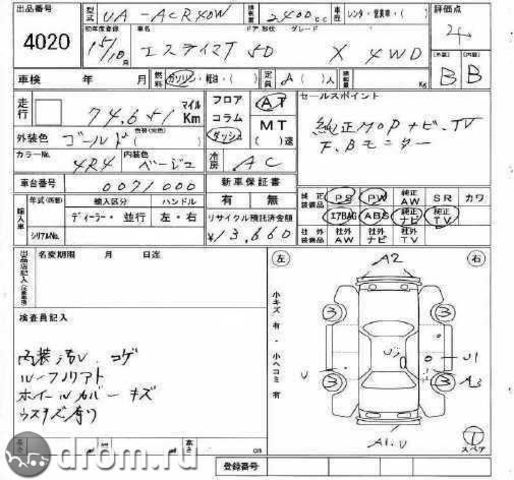 出品番号 型式 UA-ACR40W 排気量 2400cc 車歴 レンタ・営業車・( ) 評価点
4020 初年度登録 15/10月 車名 エスティマT ドア 形状 5D グレード X 4WD 4
車検 年 月 燃料 ガソリン・軽油・( ) 定員 8( )人 積載量 Kg 外装 B 内装 B
走行 74,651 マイル Km フロア コラム ダッシュ AT MT ( )速 セールスポイント
純正MOPナビ、TV
F、Bモニター
外装色 ゴールド
カラーNo. 4R4 内装色 ベージュ 冷房 AC
車台番号 0071000 新車保証書 有 無
純正装備品 PS PW 純正AW SR カワ
エアBAG ABS 純正ナビ 純正TV
社外AW 社外ナビ 社外TV
輸入車 年式 輸入区分 ハンドル
ディーラー・並行 左・右
シリアルNo.
リサイクル預託済金額
¥13,660
出品店記入 名変期限 月 日迄
検査員記入
内装汚レ コゲ
ルーフノリアト
ホイールカバーキズ
ウスキズ有り
長さ 幅 高さ cm
左 右
小キズ 有・小ヘコミ 有
A2
3 3
U
U1
A3
3 3
A1.U
スペア
登録番号
drom.ru